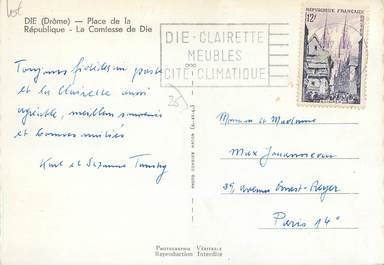 DIE (Drôme) — Place de la
République - La Comtesse de Die
DIE - CLAIRETTE
MEUBLES
CITÉ CLIMATIQUE
RÉPUBLIQUE FRANÇAISE
12F
Toujours fidèles au poste
et la clairette aussi
agréable, meilleurs souvenirs
et bonnes amitiés
Karl et Suzanne
Monsieur et Madame
Max
39, avenue Ernest-Reyer
Paris 14e
PHOTOGRAPHIE VÉRITABLE
Reproduction Interdite